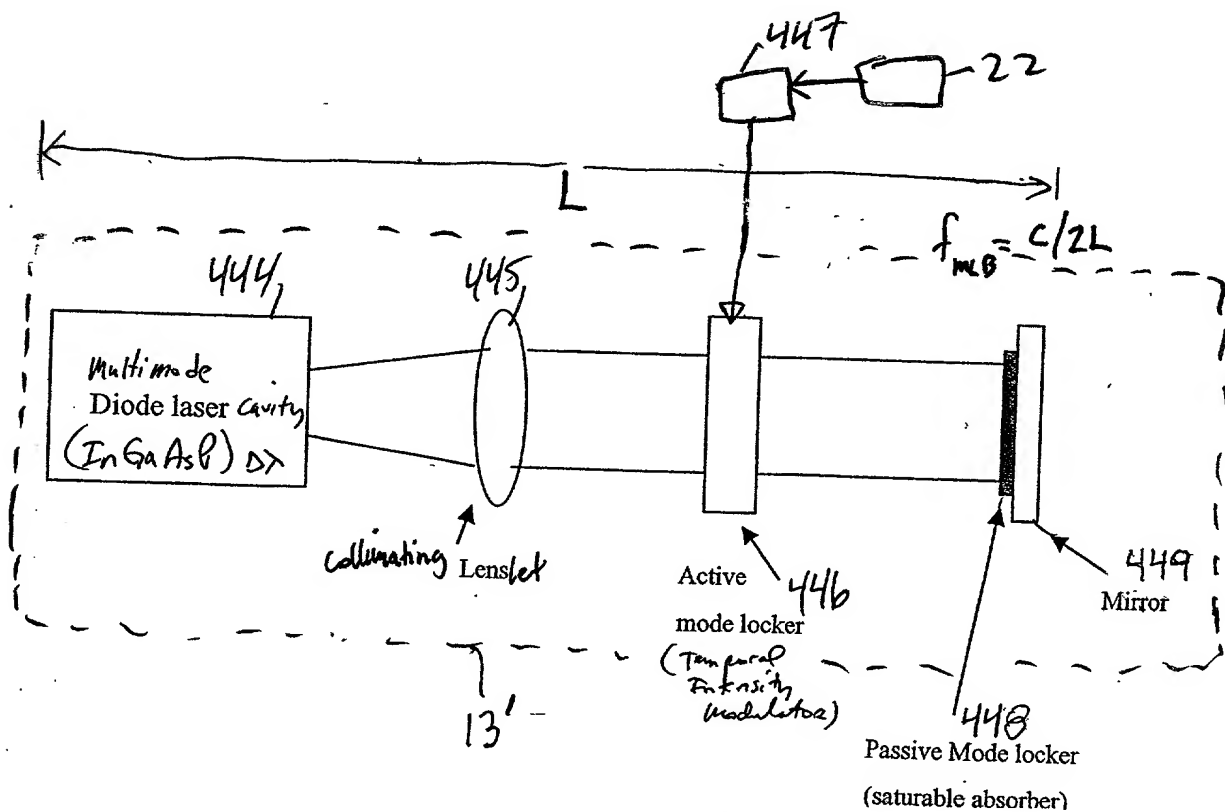 447
22
L
f_MLB = C/2L
444
445
Multimode
Diode laser Cavity
(InGaAsP) Δλ
Collimating Lenslet
Active
mode locker
(Temporal
Intensity
Modulator)
446
449
Mirror
13'
448
Passive Mode locker
(saturable absorber)